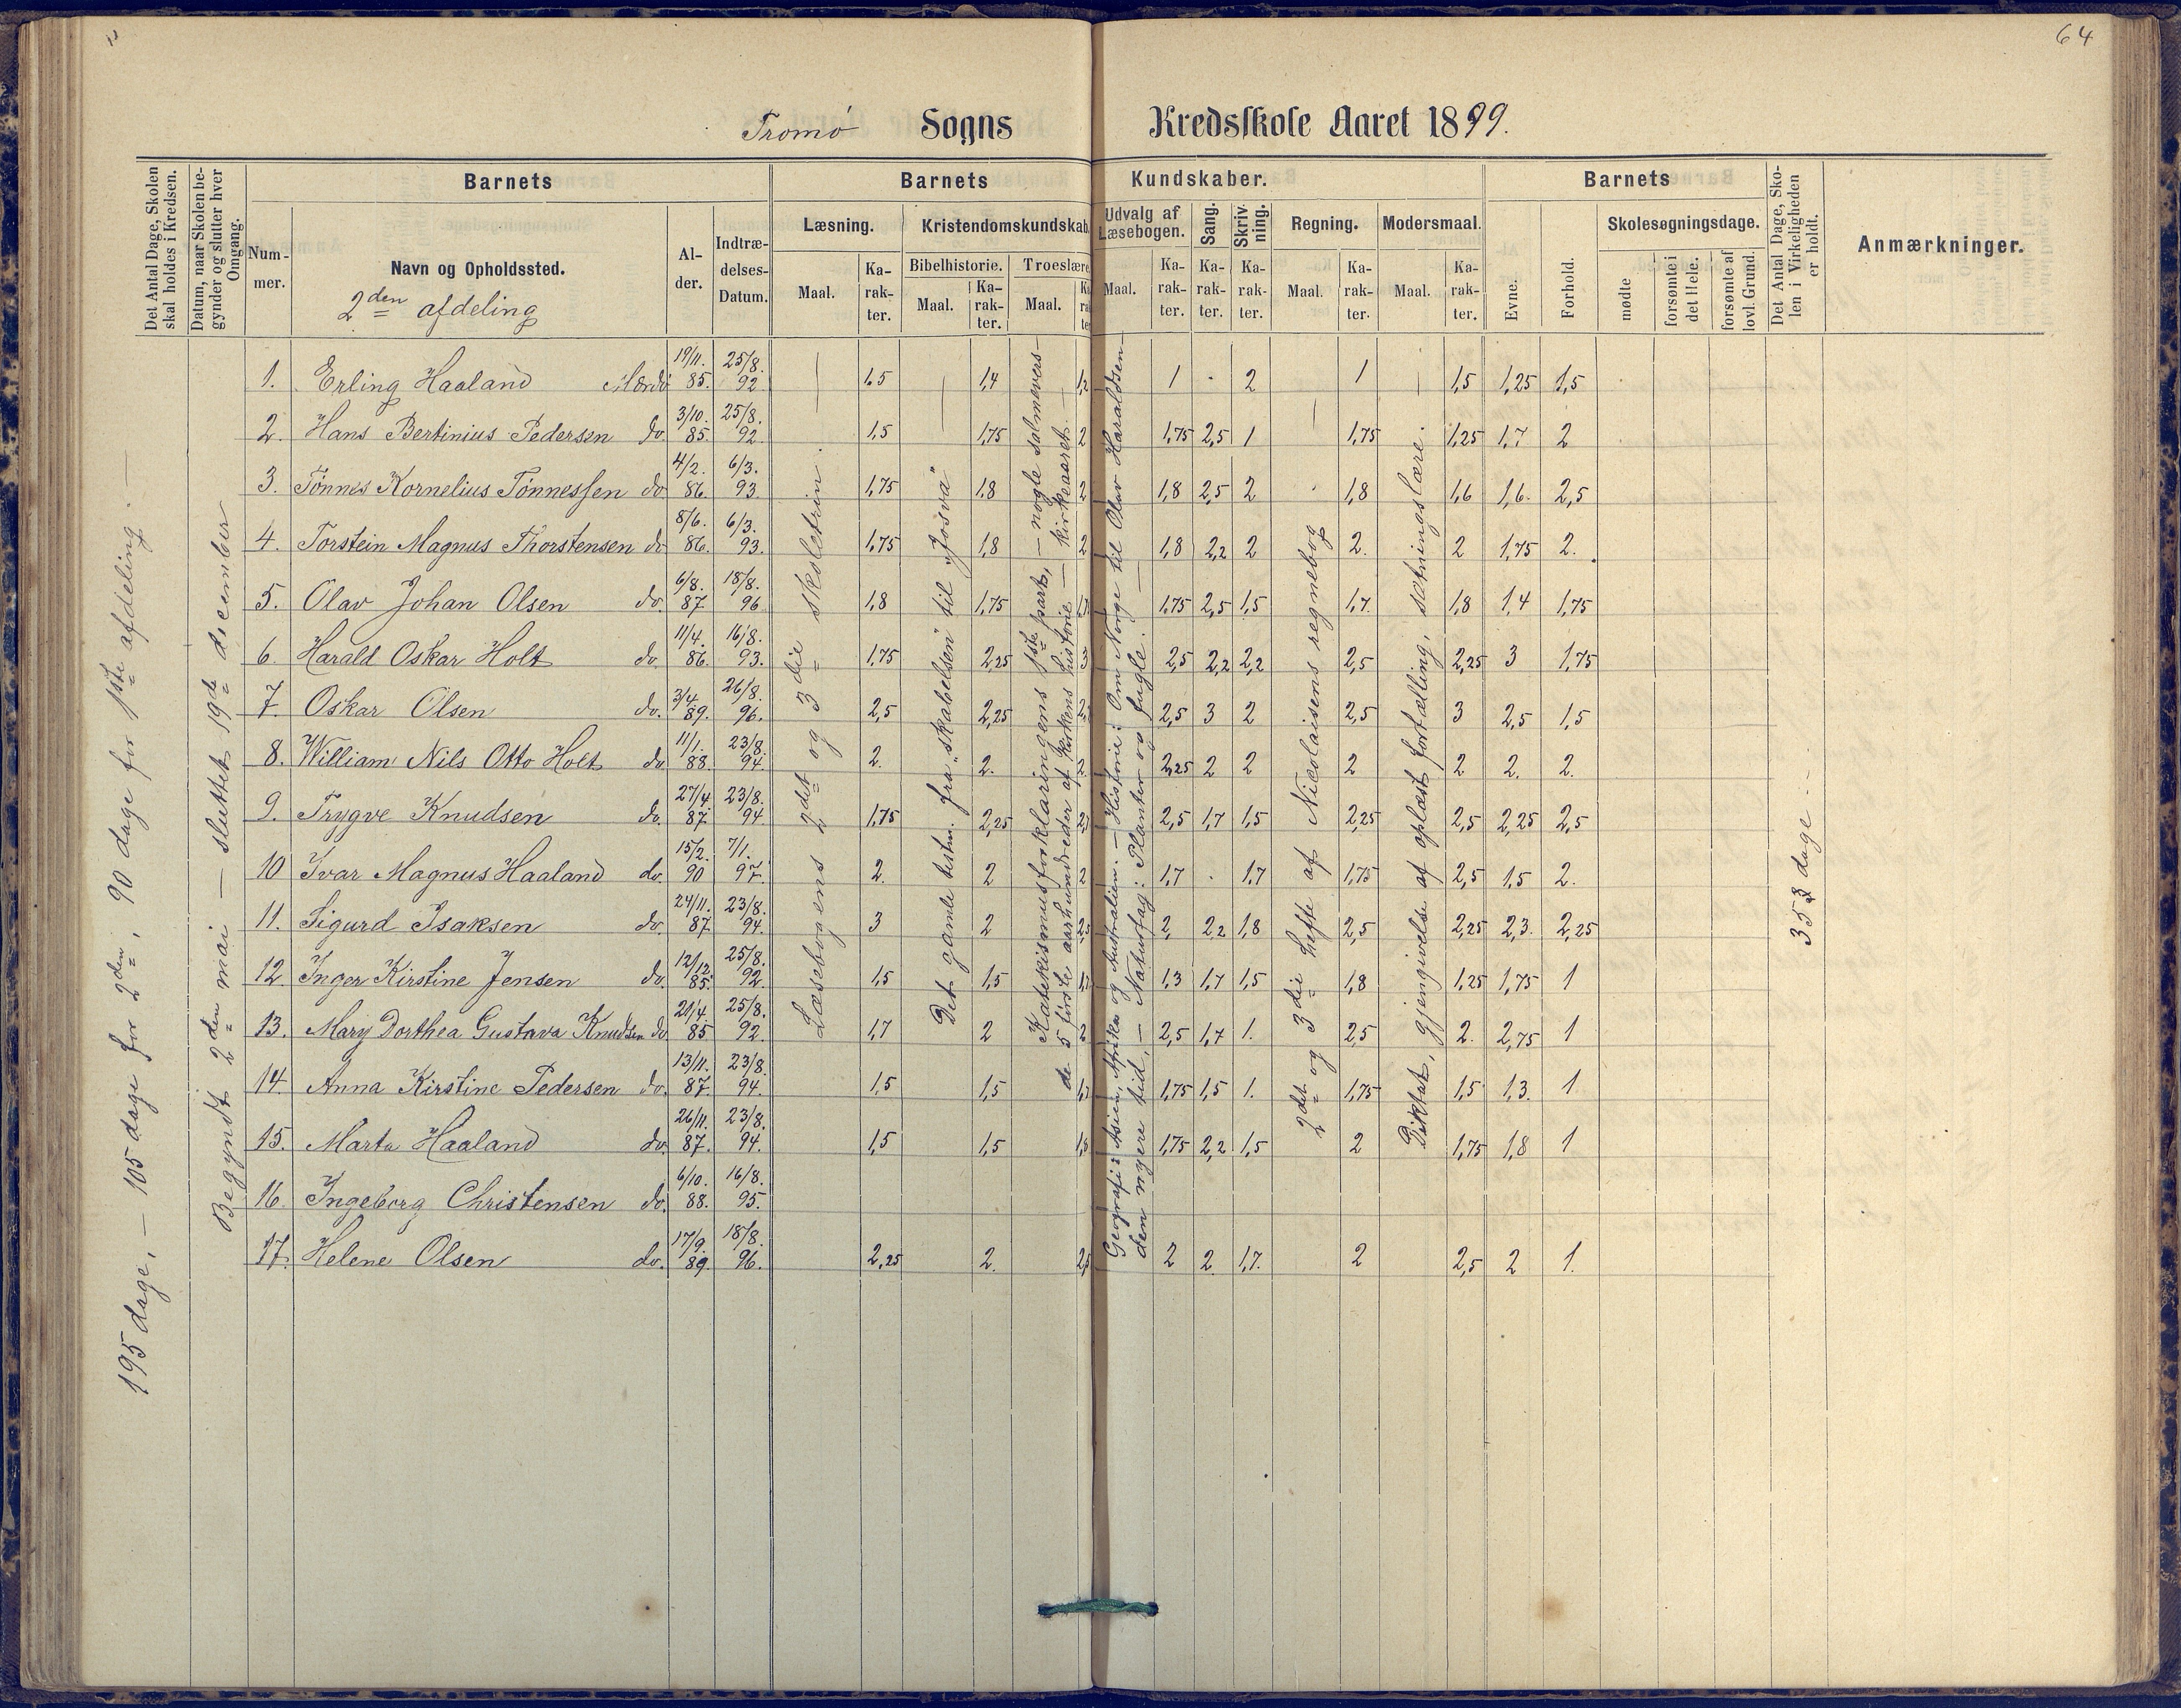 64
Tromø Sogns Kredsskole Aaret 1899.
Det Antal Dage, Skolen skal holdes i Kredsen.
Datum, naar Skolen begynder og slutter hver Omgang.
Barnets
Nummer.
Navn og Opholdssted.
2den afdeling
Alder.
Indtrædelses-Datum.
Barnets Kundskaber.
Læsning.
Maal. Karakter.
Kristendomskundskab.
Bibelhistorie. Maal. Karakter.
Troeslære Maal.
Udvalg af Læsebogen.
Maal. Karakter.
Sang. Karakter.
Skrivning. Karakter.
Regning. Maal. Karakter.
Modersmaal. Maal. Karakter.
Barnets
Evne. Forhold.
Skolesøgningsdage.
mødte
forsømte i det Hele.
forsømte af lovl. Grund.
Det Antal Dage, Skolen i Virkeligheden er holdt.
Anmærkninger.
195 dage, – 105 dage for 2den, 90 dage for 1ste afdeling. –
Begyndt 2den mai – sluttet 19de december
Læsebogens 2det og 3die skoletrin.
Det gamle testm. fra „skabelsen“ til „Josva“
Katekismusforklaringens 1ste part, – nogle salmevers –
de 5 første aarhundreder af kirkens historie – kirkeaaret. –
Geografi: Asien, Afrika og Australien. – Historie: Om Norge til Olav Haraldsen –
den nyere tid, – Naturfag: Planter og fugle. –
2det og 3die hefte af Nicolaisens regnebog
Diktat, gjengivelse af oplæst fortælling, sætningslære.
353 dage –
1. Erling Haaland Mærdø 19/11. 85. 25/8. 92 1,5 1,4 1,2 1 . 2 1 1,5 1,25 1,5
2. Hans Bertinius Pedersen do 3/10. 85. 25/8. 92 1,5 1,75 2 1,75 2,5 1 1,75 1,25 1,7 2
3. Tønnes Kornelius Tønnessen do 4/2. 86. 6/3. 93 1,75 1,8 2 1,8 2,5 2 1,8 1,6 1,6. 2,5
4. Torstein Magnus Thorstensen do 8/6. 86. 6/3. 93. 1,75 1,8 2 1,8 2,2 2 2. 2 1,75 2.
5. Olav Johan Olsen do. 6/8. 87 18/8. 96 1,8 1,75 1,75 2,5 1,5 1,7. 1,8 1,4 1,75
6. Harald Oskar Holt do. 11/4. 86. 16/8. 93. 1,75 2,25 3 2,5 2,2 2,2 2,5 2,25 3 1,75
7. Oskar Olsen do. 3/4. 89. 26/8. 96. 2,5 2,25 2,5 3 2 2,5 3 2,5 1,5
8. William Nils Otto Holt do 11/1. 88. 23/8. 94. 2. 2. 2 2,25 2 2 2 2 2. 2.
9. Trygve Knudsen do. 27/4. 87. 23/8. 94. 1,75 2,25 2,5 1,7 1,5 2,25 2,5 2,25 2,5
10 Ivar Magnus Haaland do. 15/2. 90 7/1. 97. 2. 2 2 1,7 . 1,7 1,75 2,5 1,5 2.
11. Sigurd Isaksen do. 24/11. 87. 23/8. 94. 3 2 2,5 2, 2,2 1,8 2,5 2,25 2,3. 2,25
12. Inger Kirstine Jensen do. 12/12. 85. 25/8. 92. 1,5 1,5 1,3 1,7 1,5 1,8 1,25 1,75 1
13. Mary Dorthea Gustava Knudsen do 21/4 85 25/8. 92. 1,7 2 2 2,5 1,7 1. 2,5 2. 2,75 1
14. Anna Kirstine Pedersen do. 13/11. 87. 23/8. 94. 1,5 1,5 1,75 1,5 1. 1,75 1,5 1,3. 1
15. Marta Haaland do. 26/11. 87. 23/8. 94. 1,5 1,5 1,8 1,75 2,2 1,5 2 1,75 1,8 1
16. Ingeborg Christensen do. 6/10. 88. 16/8. 95.
17. Helene Olsen do. 17/9. 89. 18/8. 96. 2,25 2. 2,5 2 2. 1,7. 2 2,5 2 1.